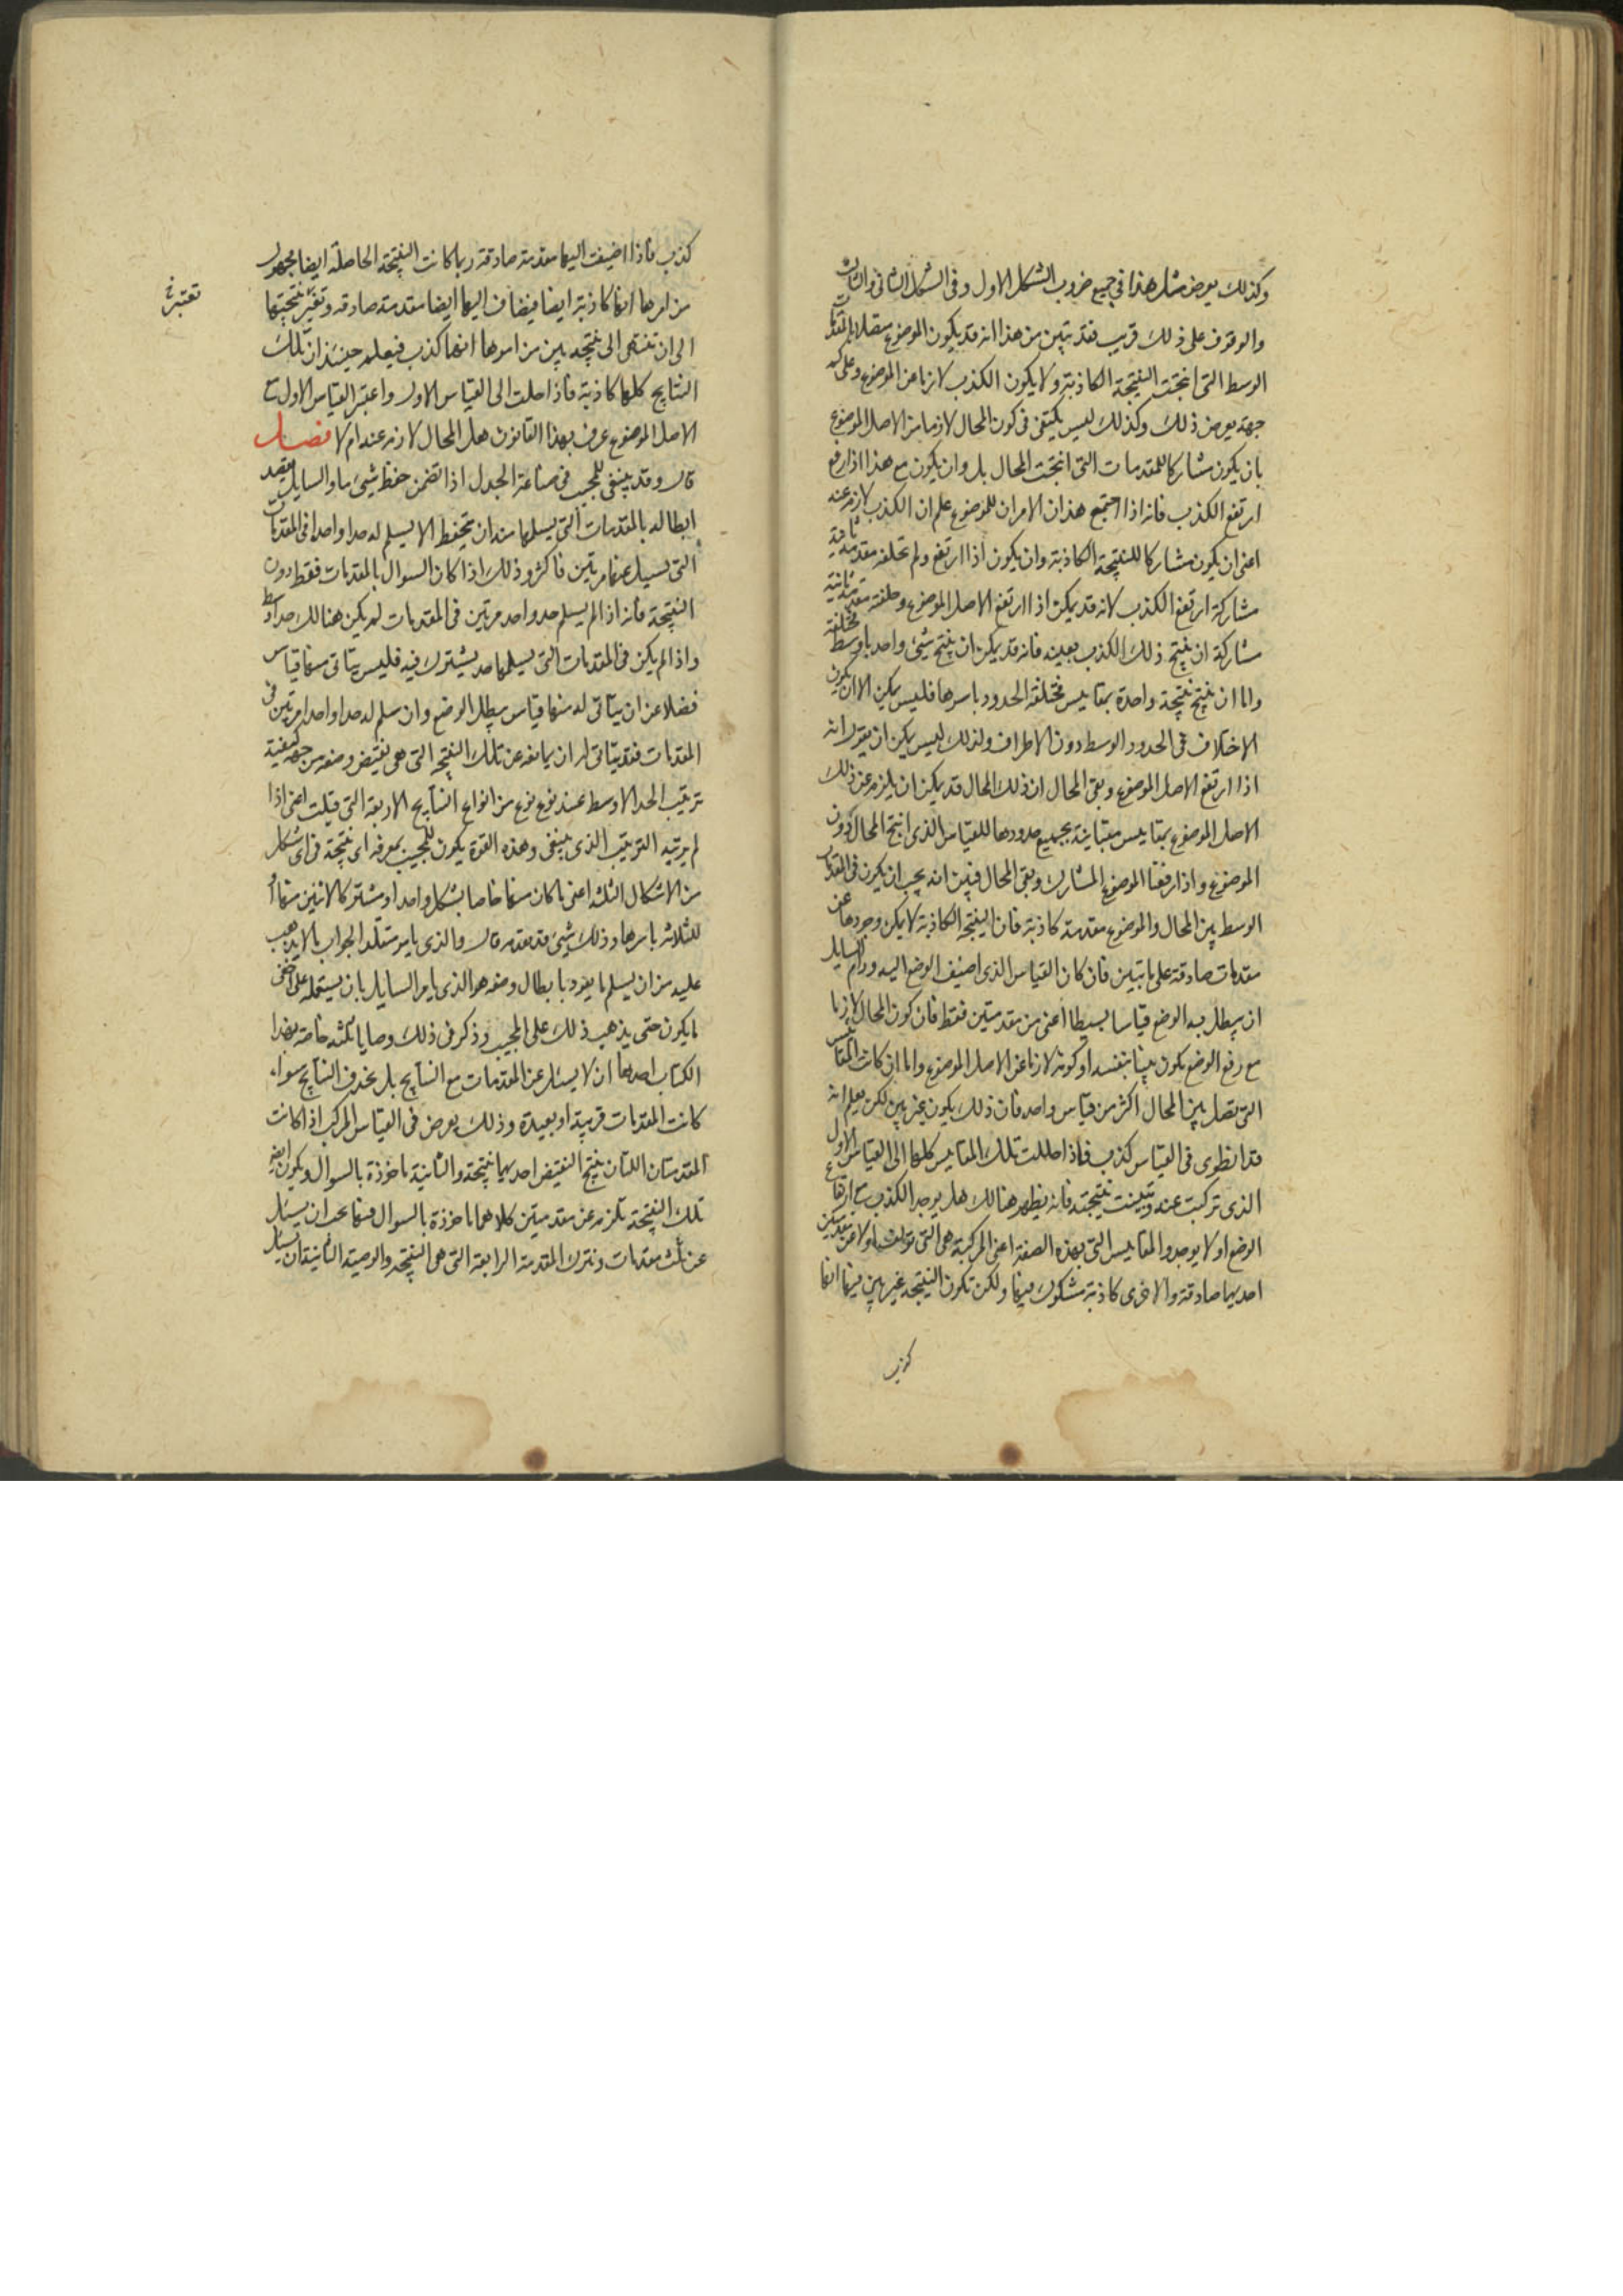 وكذلك يعرض مثل هذا في جميع ضروب الشكل الاول وفى الشكل الثانى والثالث
والوقوف على ذلك قريب فقد تبين من هذا انه قد يكون الموضوع متصلا بالمقدمات
الوسط التى انتجت النتيجة الكاذبة ولا يكون الكذب لازما عن الموضوع وعلى كم
جهة يعرض ذلك وكذلك ليس يكتفى فى كون المحال لازما من الاصل الموضوع
بان يكون مشاركا للمقدمات التى انتجت المحال بل وان يكون مع هذا اذا رفع
ارتفع الكذب فانه اذا اجتمع هذان الامران للموضوع علم ان الكذب لازم عنه
اعنى ان يكون مشاركا للنتيجة الكاذبة وان يكون اذا ارتفع ولم تخلفه مقدمة ثانية
مشاركة ارتفع الكذب لانه قد يمكن اذا ارتفع الاصل الموضوع وخلفته مقدمة ثانية
مشاركة ان ينتج ذلك الكذب بعينه فانه قد يمكن ان ينتج شىء واحد باوساط مختلفة
واما ان ينتج نتيجة واحدة بمقاييس مختلفة الحدود باسرها فليس يمكن الا ان يكون
الاختلاف فى الحدود الوسط دون الاطراف ولذلك ليس يمكن ان يقول انه
اذا ارتفع الاصل الموضوع وبقى المحال ان ذلك المحال قد يمكن ان يلزم عن ذلك
الاصل الموضوع بمقاييس متباينة بجميع حدودها للقياس الذى انتج المحال دون
الموضوع واذا رفعنا الموضوع المشارك وبقى المحال فبين انه يجب ان يكون فى المقدمات
الوسط بين المحال والموضوع مقدمة كاذبة فان النتيجة الكاذبة لا يمكن وجودها عن
مقدمات صادقة على ما تبين فان كان القياس الذى اضيف الوضع اليه ورام السايل
ان يبطل به الوضع قياسا بسيطا اعنى من مقدمتين فقط فان كون المحال لازما
مع رفع الوضع يكون بينا بنفسه او كونه لازما عن الاصل الموضوع واما ان كانت المقاييس
التى تصل بين المحال اكثر من قياس واحد فان ذلك يكون غير بين لكن يعلم انه
قد انطوى فى القياس كذب فاذا حللت تلك المقاييس كلها الى القياس الاول
الذى تركبت عنه وتبينت نتيجته فانه يظهر هنالك هل يوجد الكذب مع ارتفاع
الوضع او لا يوجد والمقاييس التى بهذه الصفة اعنى المركبة هى التى تؤلف اولا من مقدمتين
احديهما صادقة والاخرى كاذبة مشكوك فيها ولكن تكون النتيجة غير بين فيها انها
كذب
كذب فاذا اضيفت اليها مقدمة صادقة ربما كانت النتيجة الحاصلة ايضا مجهول
من امرها انها كاذبة ايضا فيضاف اليها ايضا مقدمة صادقة وتغير نتيجتها
تعتبر خ
الى ان تنتهى الى نتيجة بين من امرها انها كذب فيعلم حينئذ ان تلك
النتايج كلها كاذبة فاذا حلت الى القياس الاول واعتبر القياس الاول مع
الاصل الموضوع عرف بهذا القانون هل المحال لازم عنه ام لا فصل
قال وقد ينبغى للمجيب فى صناعة الجدل اذا تضمن حفظ شىء ما والسايل يقصد
ابطاله بالمقدمات التى يسلمها منه ان يتحفظ الا يسلم له حدا واحدا فى المقدمات
التى يسيل عنها مرتين فاكثر وذلك اذا كان السوال بالمقدمات فقط دون
النتيجة فانه اذا لم يسلم حد واحد مرتين فى المقدمات لم يكن هنالك حد اوسط
واذا لم يكن فى المقدمات التى يسلمها حد يشترك فيه فليس يتاتى منها قياس
فضلا عن ان يتاتى له منها قياس يبطل الوضع وان سلم له حدا واحدا مرتين فى
المقدمات فقد يتاتى له ان يمانعه عن تلك النتيجة التى هى نقيض وضعه من جهة كيفية
ترتيب الحد الاوسط عند نوع نوع من انواع النتايج الاربعة التى قيلت اعنى اذا
لم يرتبه الترتيب الذى ينبغى وهذه القوة يكون للمجيب بمعرفه اى نتيجة فى اى شكل
من الاشكال الثلثة اعنى ما كان منها خاصا بشكل واحد او مشتركا لاثنين منها او
للثلاثة باسرها وذلك شىء قد تقدم قال والذى يامر متقلد الجواب بالا يذهب
عليه من ان يسلم ما يعود بابطال وضعه هو الذى يامر السايل بان يستعمله على اخفى
ما يكون حتى يذهب ذلك على المجيب وذكر فى ذلك وصايا ثلثة خاصة بهذا
الكتاب احدها ان لا يسئل عن المقدمات مع النتايج بل يحذف النتايج سواء
كانت المقدمات قريبة او بعيدة وذلك يعرض فى القياس المركب اذا كانت
المقدمتان اللتان ينتج النقيض احديهما نتيجة والثانية ماخوذة بالسوال ويكون ايضا
تلك النتيجة تلزم عن مقدمتين كلاهما ماخوذة بالسوال فيها يجب ان يسئل
عن ثلث مقدمات ونترك المقدمة الرابعة التى هى النتيجة والوصية الثانية ان يسئل